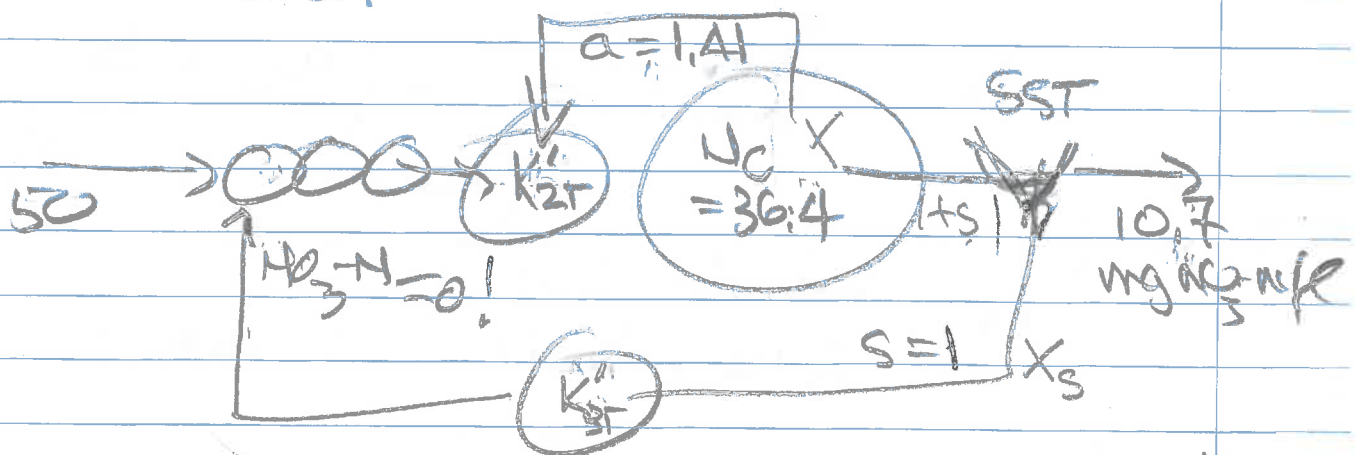 a = 1,41
SST
50
K"2T
Nc
= 36,4
X
1+s
10,7
mg NO3-N/l
NO3-N=0!
s=1
Xs
K"3T